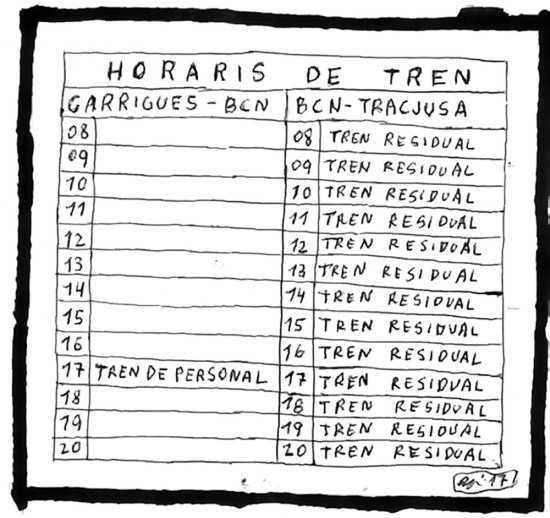 HORARIS DE TREN
GARRIGUES - BCN BCN - TRACJUSA
08 08 TREN RESIDUAL
09 09 TREN RESIDUAL
10 10 TREN RESIDUAL
11 11 TREN RESIDUAL
12 12 TREN RESIDUAL
13 13 TREN RESIDUAL
14 14 TREN RESIDUAL
15 15 TREN RESIDUAL
16 16 TREN RESIDUAL
17 TREN DE PERSONAL 17 TREN RESIDUAL
18 18 TREN RESIDUAL
19 19 TREN RESIDUAL
20 20 TREN RESIDUAL
17